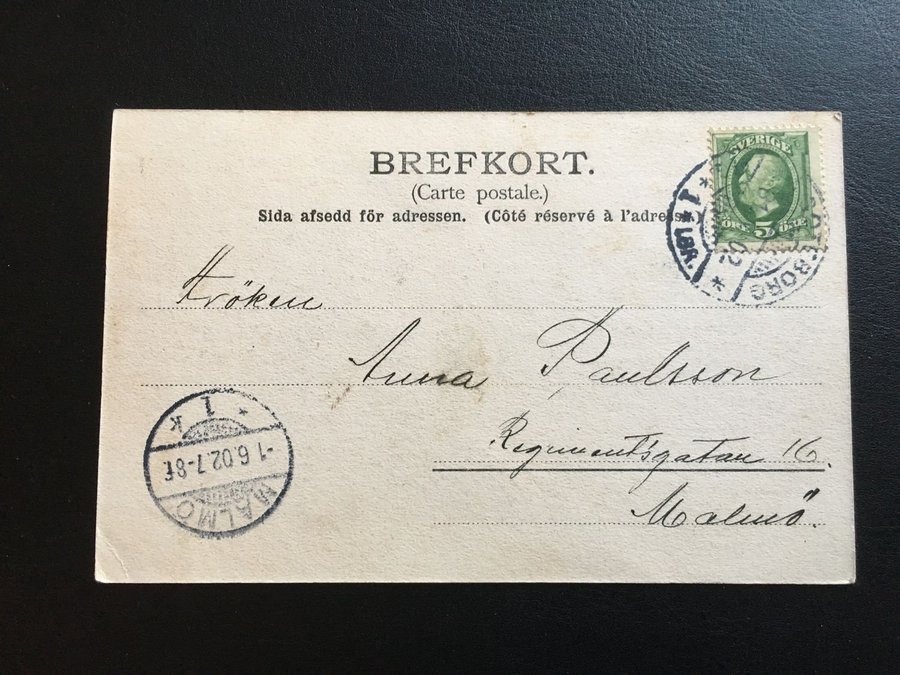 BREFKORT.
(Carte postale.)
Sida afsedd för adressen. (Côté réservé à l'adresse.
SVERIGE
ÖRE 5 ÖRE
BORG
LBR.
02
Fröken
Anna Paulsson
Regimentsgatan 16.
Malmö.
* 1 K
-1.6.02.7-8F.
MALMÖ